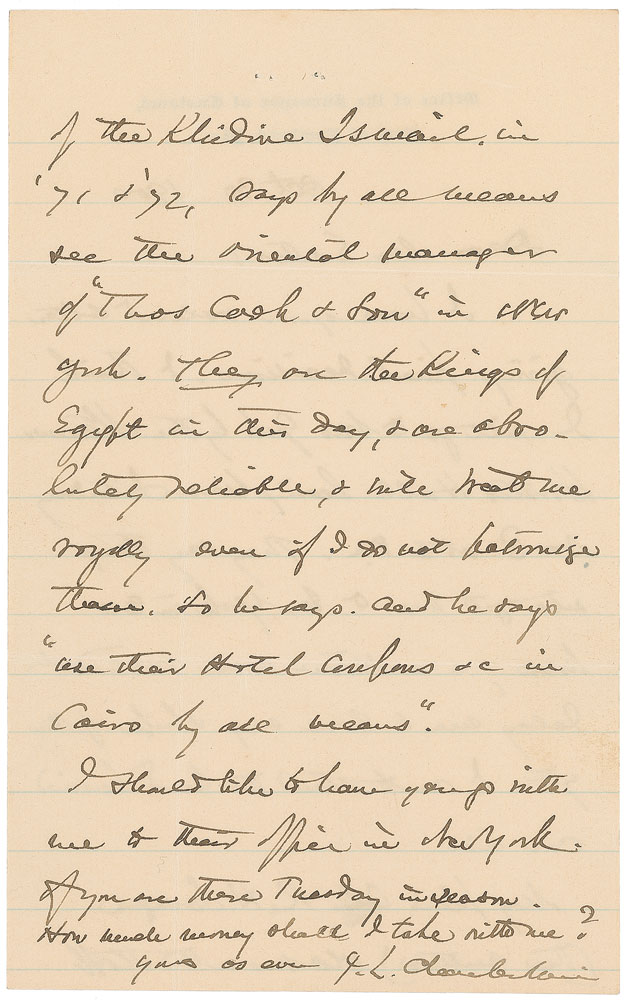 of the Khidive Ismail, in
'71 & '72, says by all means
see the oriental manager
of "Thos Cook & Son" in New
York. They are the Kings of
Egypt in this day, & are abso-
lutely reliable, & will treat me
royally even if I do not patronize
them. So he says. And he says
"use their Hotel Coupons &c in
Cairo by all means".
I should like to have you go with
me to their office in New York.
If you are there Tuesday in season.
How much money shall I take with me?
yours as ever J. L. Chamberlain